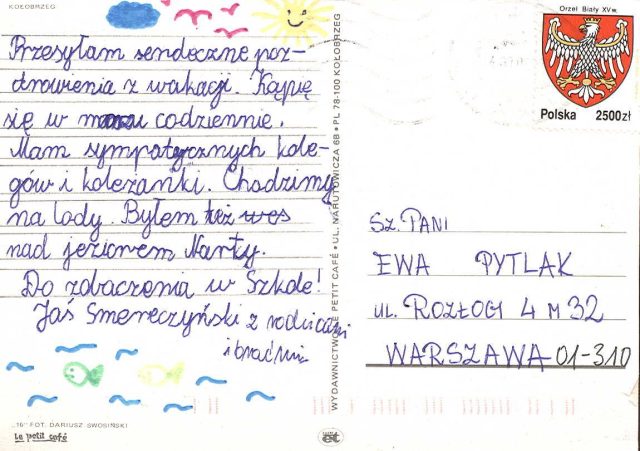 KOŁOBRZEG
Przesyłam serdeczne poz-
drowienia z wakacji. Kąpię
się w morzu codziennie.
Mam sympatycznych kole-
gów i koleżanki. Chodzimy
na lody. Byłem też
nad jeziorem Narty.
Do zobaczenia w Szkole!
Jaś Smereczyński z rodzicami
i braćmi
"16" FOT. DARIUSZ SWOSIŃSKI
Le petit café
WYDAWNICTWO LE PETIT CAFÉ • UL. NARUTOWICZA 6B • PL 78-100 KOŁOBRZEG
Orzeł Biały XVw.
Polska 2500zł
SZ. PANI
EWA PYTLAK
UL. ROZŁOGI 4 M 32
WARSZAWA 01-310